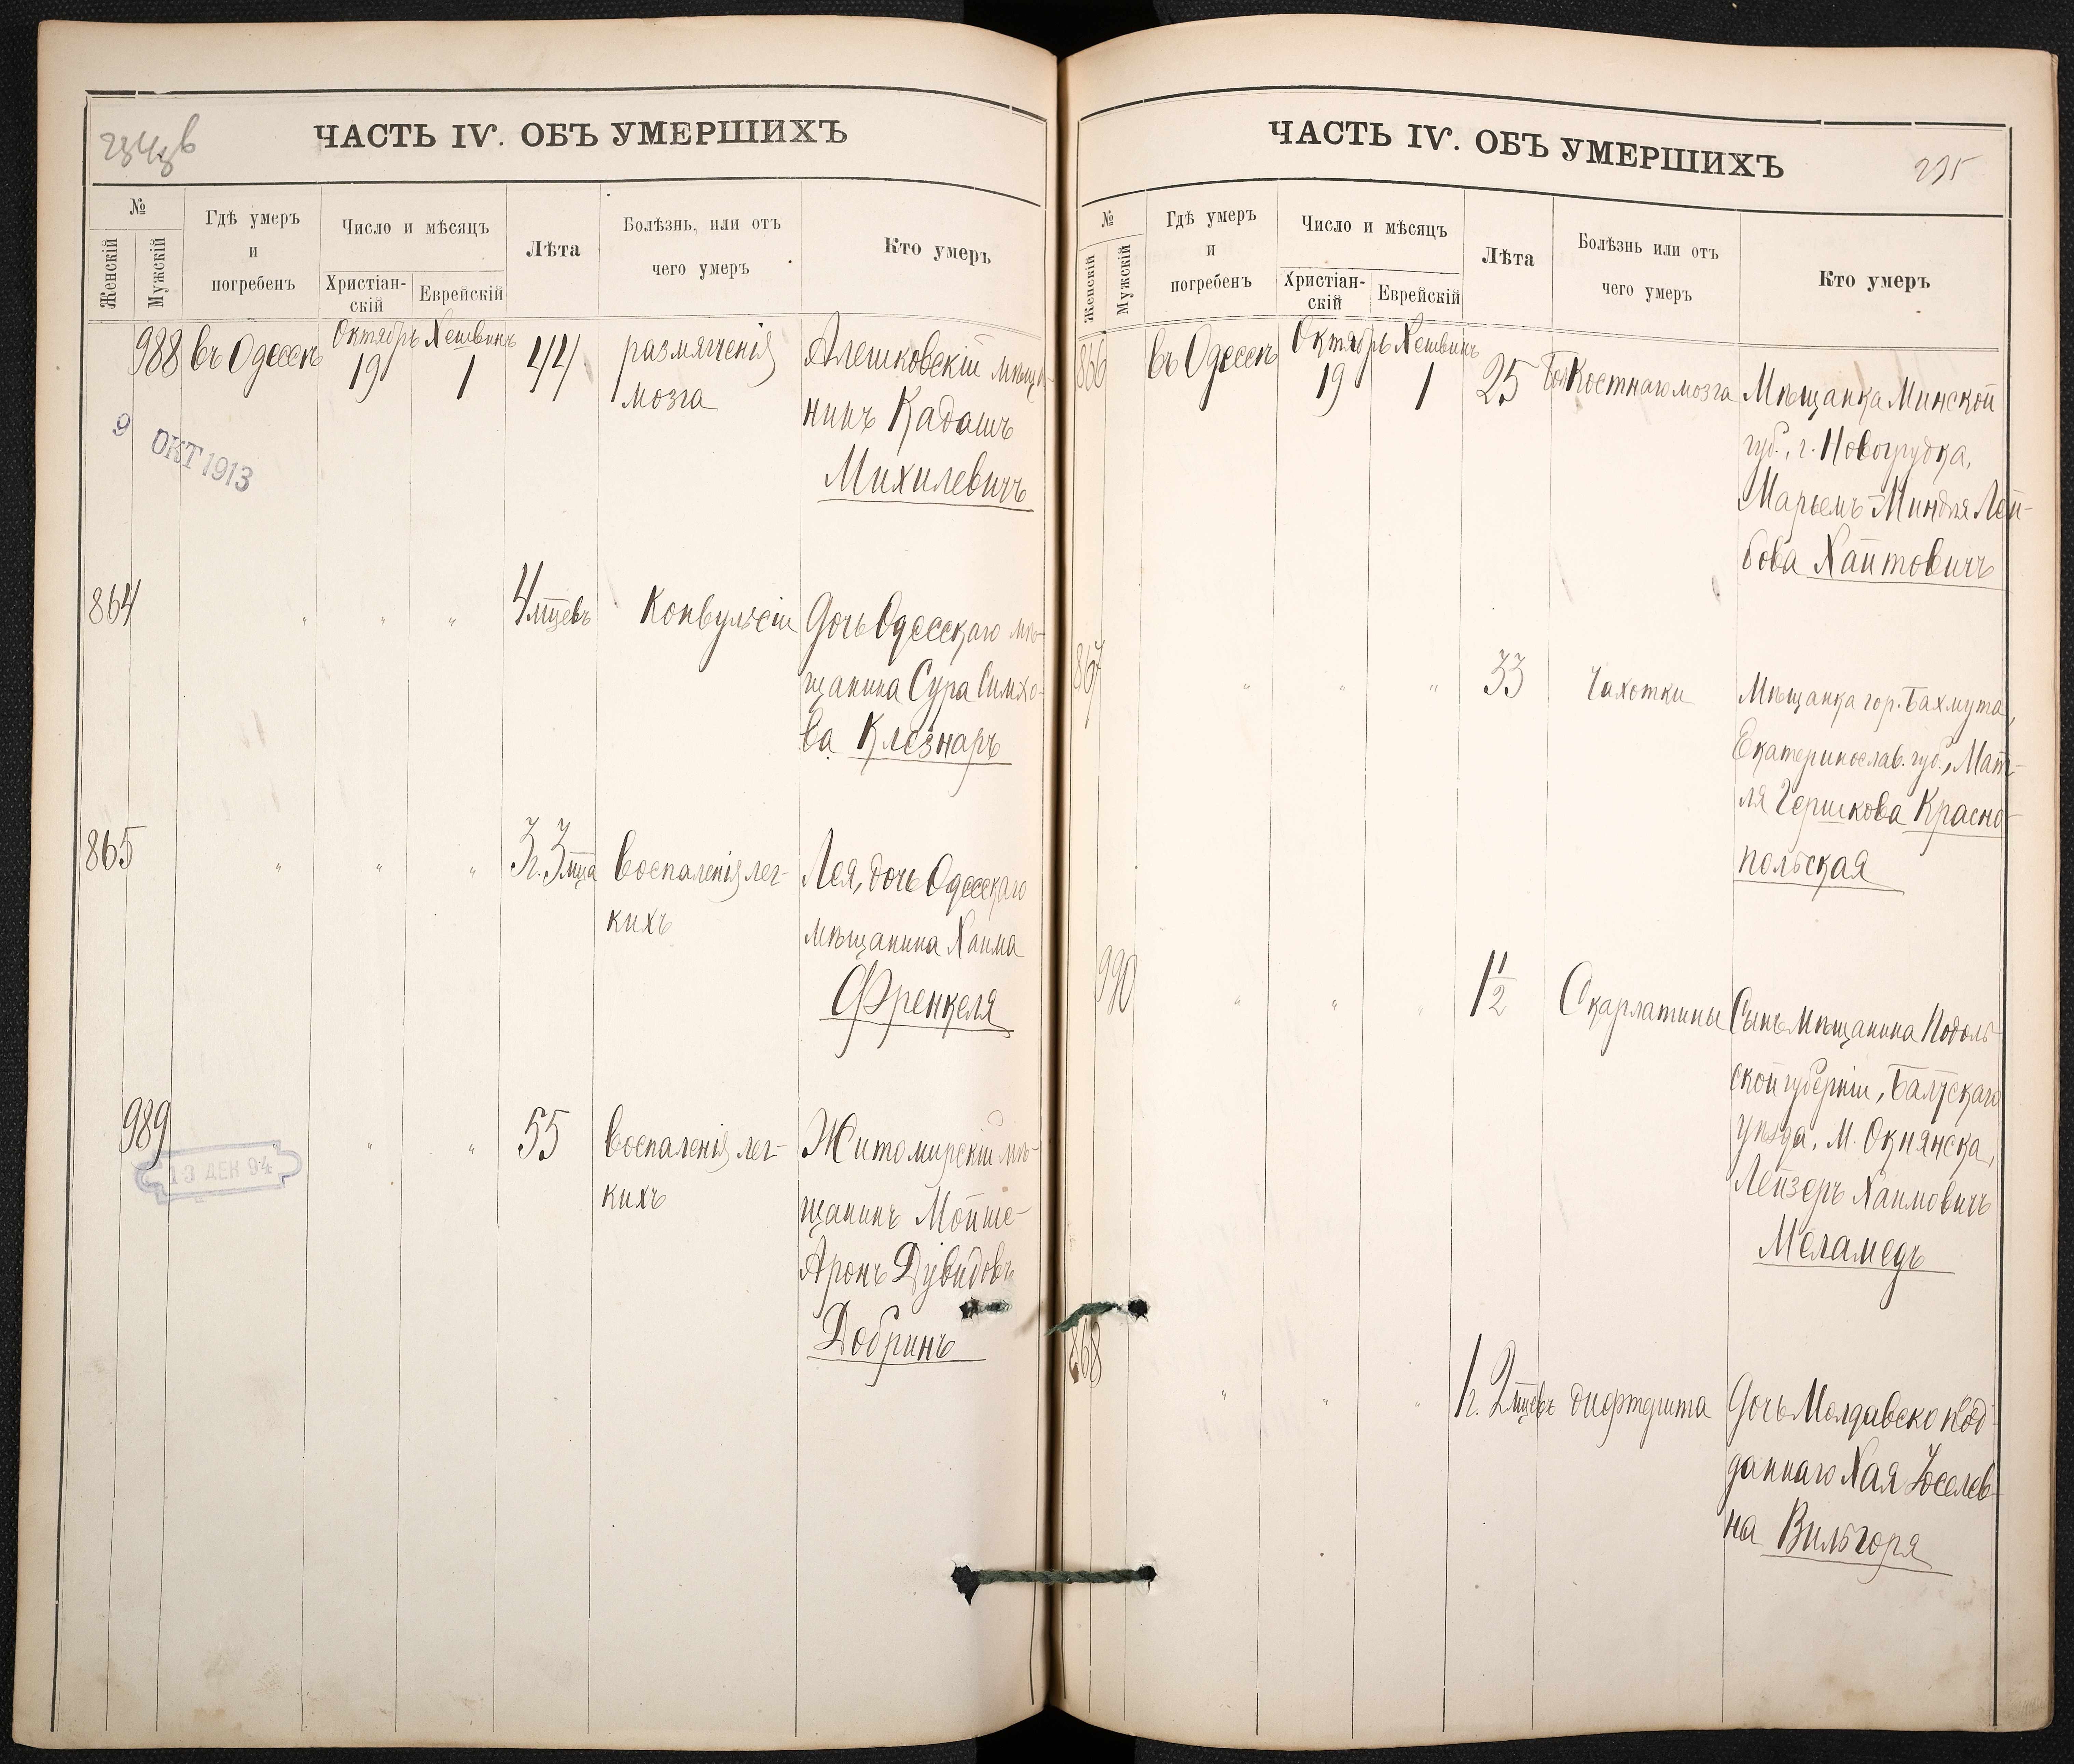 234
ЧАСТЬ IV. ОБЪ УМЕРШИХЪ
№
Женскій
Мужскій
Гдѣ умеръ
и
погребенъ
Число и мѣсяцъ
Христіан-
скій
Еврейскій
Лѣта
Болѣзнь, или отъ
чего умеръ
Кто умеръ
988 въ Одессѣ Октябрь 19 Хешвинъ 1 44 размягченія Алешковскій мѣща-
мозга нинъ Кадашъ
Михилевичъ
9 ОКТ 1913
864 " " " 4 мцевъ Конвульсіи Дочь Одесскаго мѣ-
щанина Сура Симхо-
ва Клезнаръ
865 " " " 3 г. 3 мца воспаленія лег- Лея, дочь Одесскаго
кихъ мѣщанина Хаима
Френкеля
989 " " 55 воспаленія лег- Житомирскій мѣ-
кихъ щанинъ Мойше-
13 ДЕК 94
Аронъ Дувидовъ
Добринъ
ЧАСТЬ IV. ОБЪ УМЕРШИХЪ
235
№
Женскій
Мужскій
Гдѣ умеръ
и
погребенъ
Число и мѣсяцъ
Христіан-
скій
Еврейскій
Лѣта
Болѣзнь или отъ
чего умеръ
Кто умеръ
866 въ Одессѣ Октябрь 19 Хешвинъ 1 25 Костнаго мозга Мѣщанка Минской
губ., г. Новогрудка,
Марьемъ-Миндля Лей-
бова Хайтовичъ
867 " " " 33 Чахотки Мѣщанка гор. Бахмута,
Екатеринослав. губ., Мат-
ля Гершкова Красно-
польская
990 " " " 1 1/2 Скарлатины Сынъ мѣщанина Подоль-
ской губерніи, Балтскаго
уѣзда, м. Окнянска,
Лейзеръ Хаимовичъ
Меламедъ
868 " " " 1 г. 2 мцевъ дифтерита Дочь Молдавско под-
даннаго Хая Іоселев-
на Вильгоря